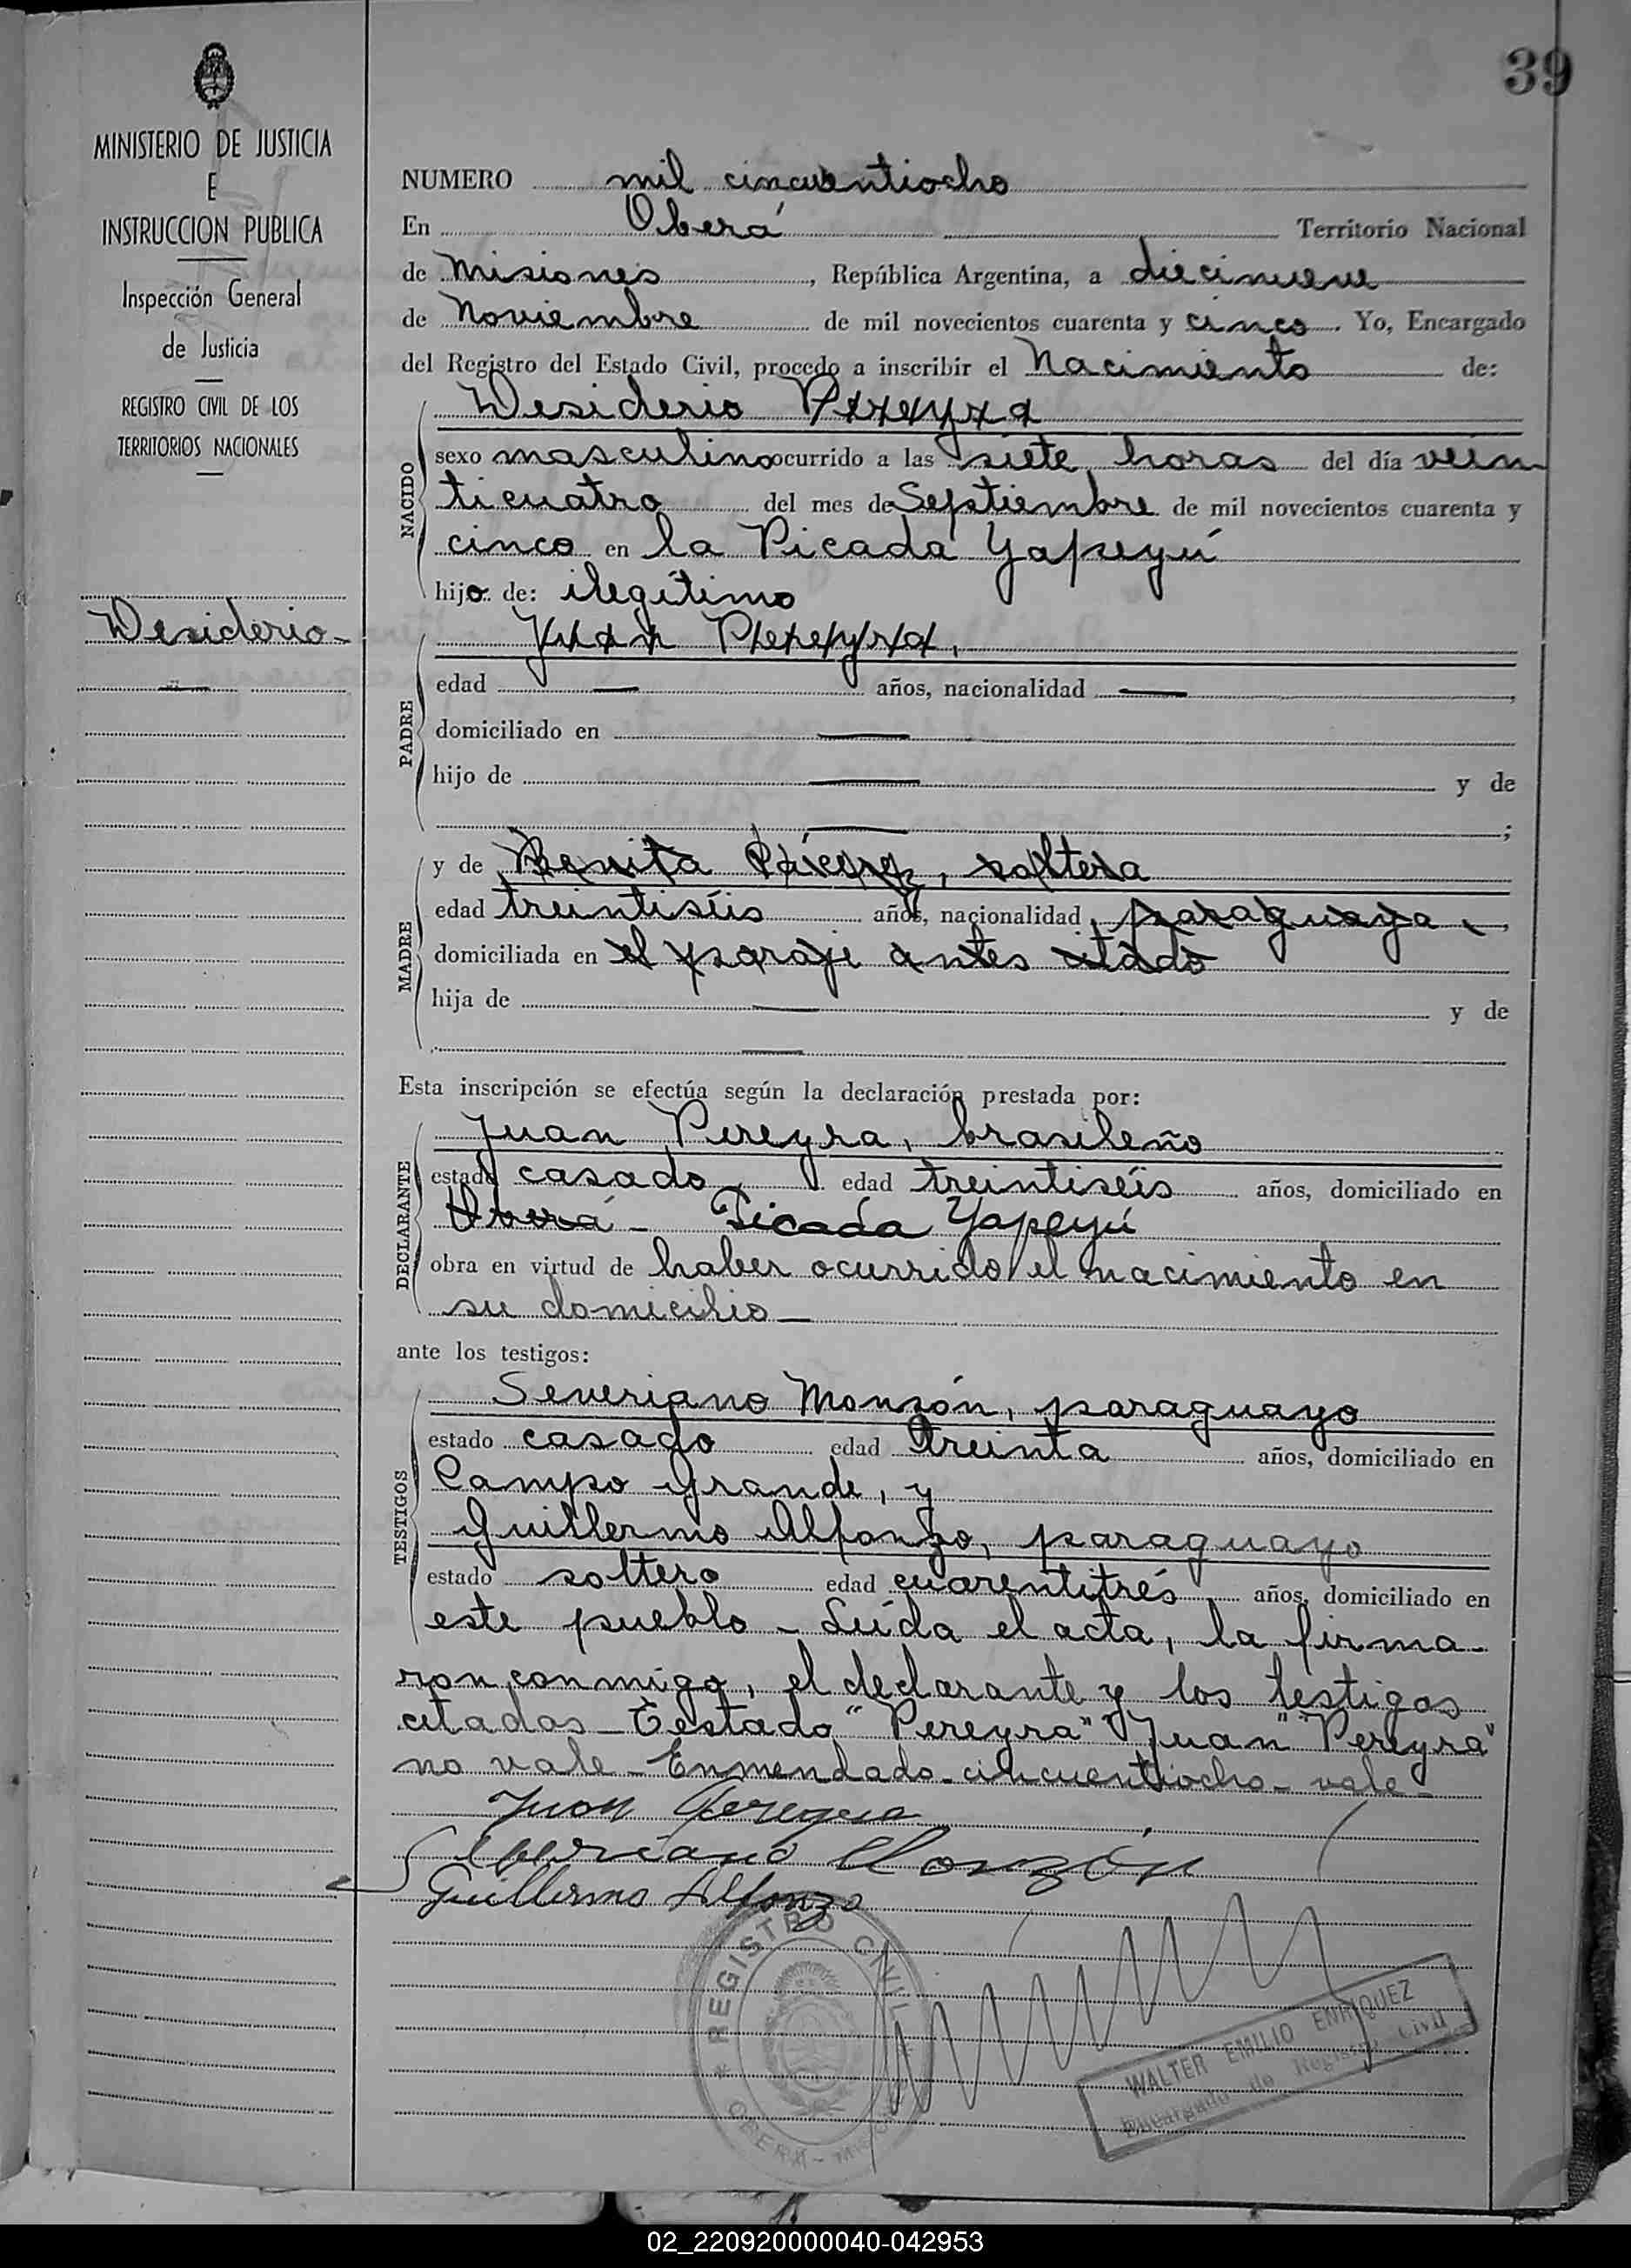 39
MINISTERIO DE JUSTICIA
E
INSTRUCCION PUBLICA
Inspección General
de Justicia
REGISTRO CIVIL DE LOS
TERRITORIOS NACIONALES
Desiderio
NUMERO mil cincuentiocho
En Oberá Territorio Nacional
de Misiones, República Argentina, a diecinueve
de Noviembre de mil novecientos cuarenta y cinco. Yo, Encargado
del Registro del Estado Civil, procedo a inscribir el Nacimiento de:
NACIDO
Desiderio Pereyra
sexo masculino ocurrido a las siete horas del día vein
ticuatro del mes de Septiembre de mil novecientos cuarenta y
cinco en la Picada Yapeyú
hijo de: ilegítimo
PADRE
Juan Pereyra,
edad — años, nacionalidad —,
domiciliado en —
hijo de — y de
—;
MADRE
y de Benita, soltera
edad treintiséis años, nacionalidad paraguaya,
domiciliada en el paraje antes citado
hija de — y de
—
Esta inscripción se efectúa según la declaración prestada por:
DECLARANTE
Juan Pereyra, brasileño
estado casado edad treintiséis años, domiciliado en
Oberá - Picada Yapeyú
obra en virtud de haber ocurrido el nacimiento en
su domicilio —
ante los testigos:
TESTIGOS
Severiano Monzón, paraguayo
estado casado edad treinta años, domiciliado en
Campo Grande, y
Guillermo Alfonzo, paraguayo
estado soltero edad cuarentitrés años, domiciliado en
este pueblo - Leída el acta, la firma-
ron conmigo, el declarante y los testigos
citados - Testado "Pereyra" "Juan" "Pereyra"
no vale - Enmendado - cincuentiocho - vale -
Juan Pereyra
Severiano Monzón
Guillermo Alfonzo
REGISTRO CIVIL
OBERÁ - MISIONES
WALTER EMILIO ENRIQUEZ
Encargado de Registro Civil
02_220920000040-042953